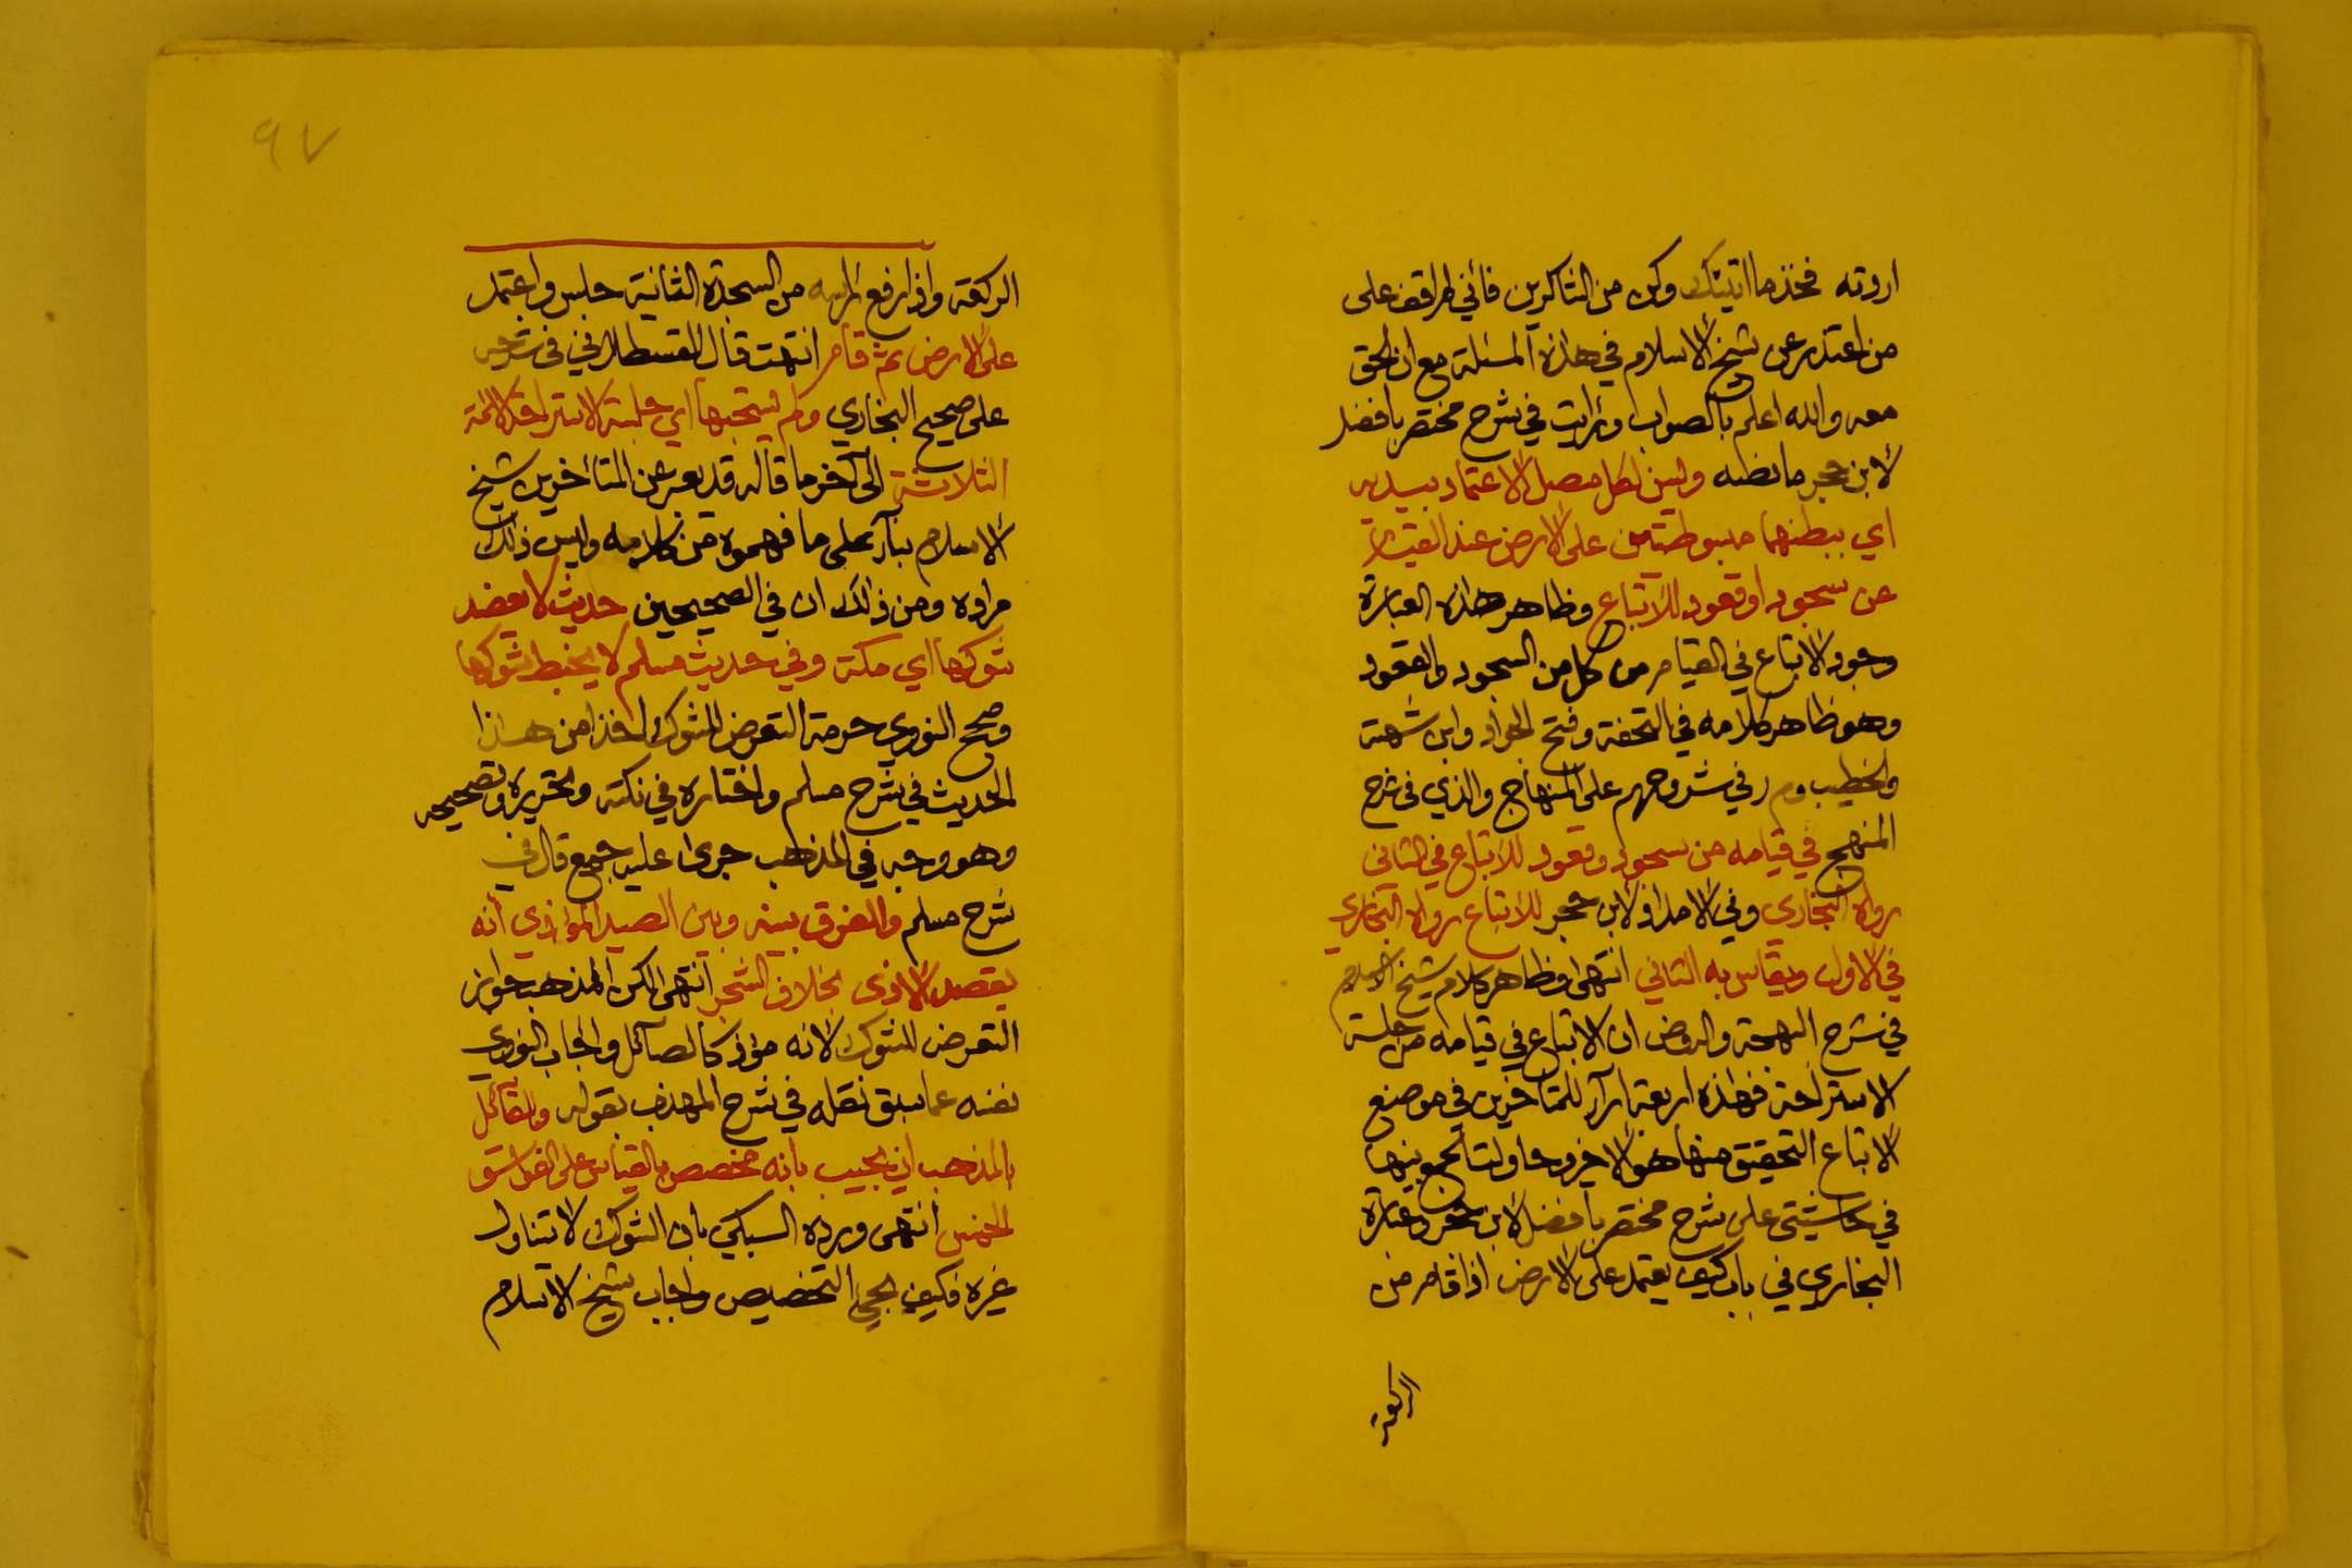 اردته فخذ ما اتيتك وكن من الشاكرين فأني لم اقف على
من اعتذر عن شيخ الاسلام في هذه المسئلة مع ان الحق
معه والله اعلم بالصواب ورأيت في شرح مختصر بافضل
لابن حجر ما نصه وليس لكل مصل الاعتماد بيديه
اي ببطنهما مبسوطتين على الارض عند القيام
عن سجود او قعود للاتباع وظاهر هذه العبارة
وجود الاتباع في القيام من كل من السجود والقعود
وهو ظاهر كلامه في التحفة وفتح الجواد وابن شهبة
والخطيب وم ر في شروحهم على المنهاج والذي في شرح
المنهج في قيامه من سجود وقعود للاتباع في الثاني
رواه البخاري وفي الامداد لابن حجر للاتباع رواه البخاري
في الاول ويقاس به الثاني انتهى وظاهر كلام شيخ الاسلام
في شرح البهجة والروض ان الاتباع في قيامه من جلسة
الاستراحة فهذه اربعة ارآء للمتأخرين في موضع
الاتباع التحقيق منها هو الاخر وحاولت الجمع بينها
في حاشيتي على شرح مختصر بافضل لابن حجر وعبارة
البخاري في باب كيف يعتمد على الارض اذا قام من
الركعة
٩٧
الركعة واذا رفع رأسه من السجدة الثانية جلس واعتمد
على الارض ثم قام انتهت قال القسطلاني في شرحه
على صحيح البخاري ولم يستحبها اي جلسة الاستراحة الائمة
الثلاثة الى آخر ما قاله قد يعبر عن المتأخرين شيخ
الاسلام بنآء على ما فهموه من كلامه وليس ذلك
مراده ومن ذلك ان في الصحيحين حديث لا يعضد
شوكها اي مكة وفي حديث مسلم لا يخبط شوكها
وصحح النووي حرمة التعرض للشوك اخذا من هذا
الحديث في شرح مسلم واختاره في نكته وتحريره وتصحيحه
وهو وجه في المذهب جرى عليه جمع قال في
شرح مسلم والفرق بينه وبين الصيد المؤذي أنه
يقصد الاذى بخلاف الشجر انتهى لكن المذهب جواز
التعرض للشوك لانه مؤذ كالصآئل واجاب النووي
نفسه عما سبق نقله في شرح المهذب بقوله وللقآئل
بالمذهب ان يجيب بأنه مخصص بالقياس على الفواسق
الخمس انتهى ورده السبكي بان الشوك لا تتناول
غيره فكيف يجيء التخصيص واجاب شيخ الاسلام